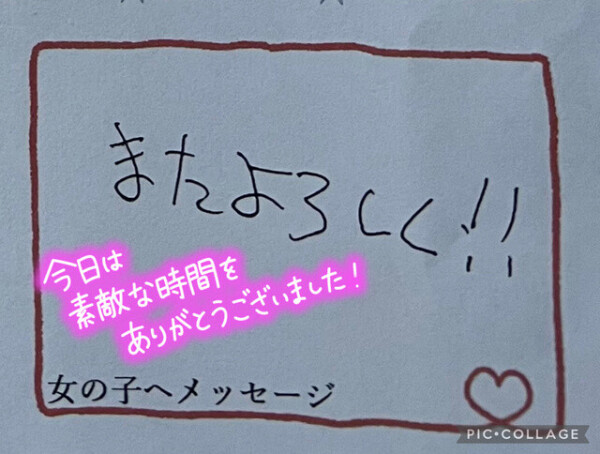 またよろしく!!
今日は
素敵な時間を
ありがとうございました!
女の子へメッセージ
PIC•COLLAGE